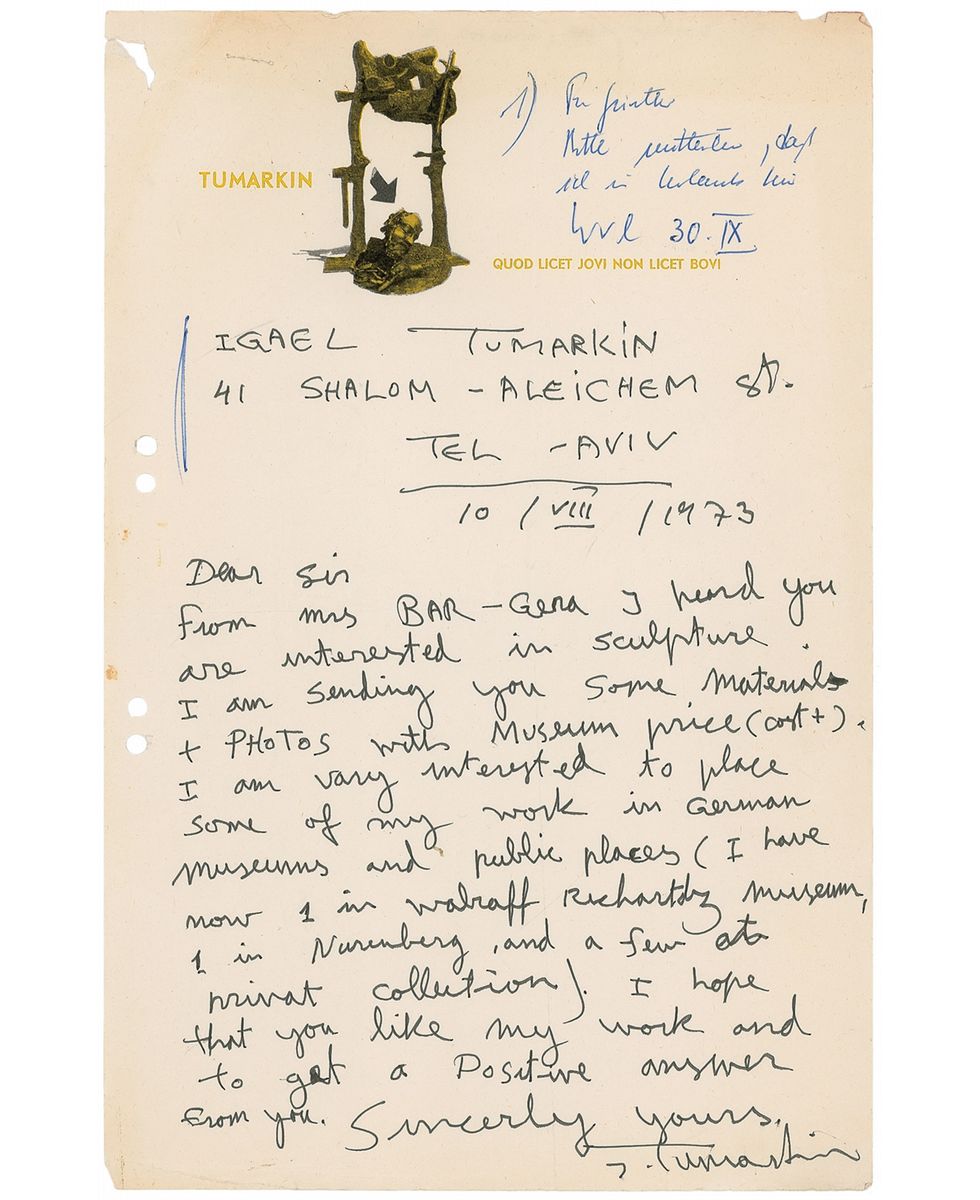 TUMARKIN
1)
Bitte mitteilen, daß
ich in Urlaub bin
30. IX
QUOD LICET JOVI NON LICET BOVI
IGAEL TUMARKIN
41 SHALOM - ALEICHEM st.
TEL - AVIV
10 / VIII / 1973
Dear Sir
From mrs BAR - Gera I heard you
are interested in sculpture.
I am sending you some Materials
+ PHOTOS with Museum price (cost +).
I am vary interested to place
some of my work in German
museums and public places ( I have
now 1 in walraff Richartdz museum,
1 in Nurenberg, and a few at
privat collection). I hope
that you like my work and
to get a Positive answer
From you. Sincerly yours,
I. Tumarkin